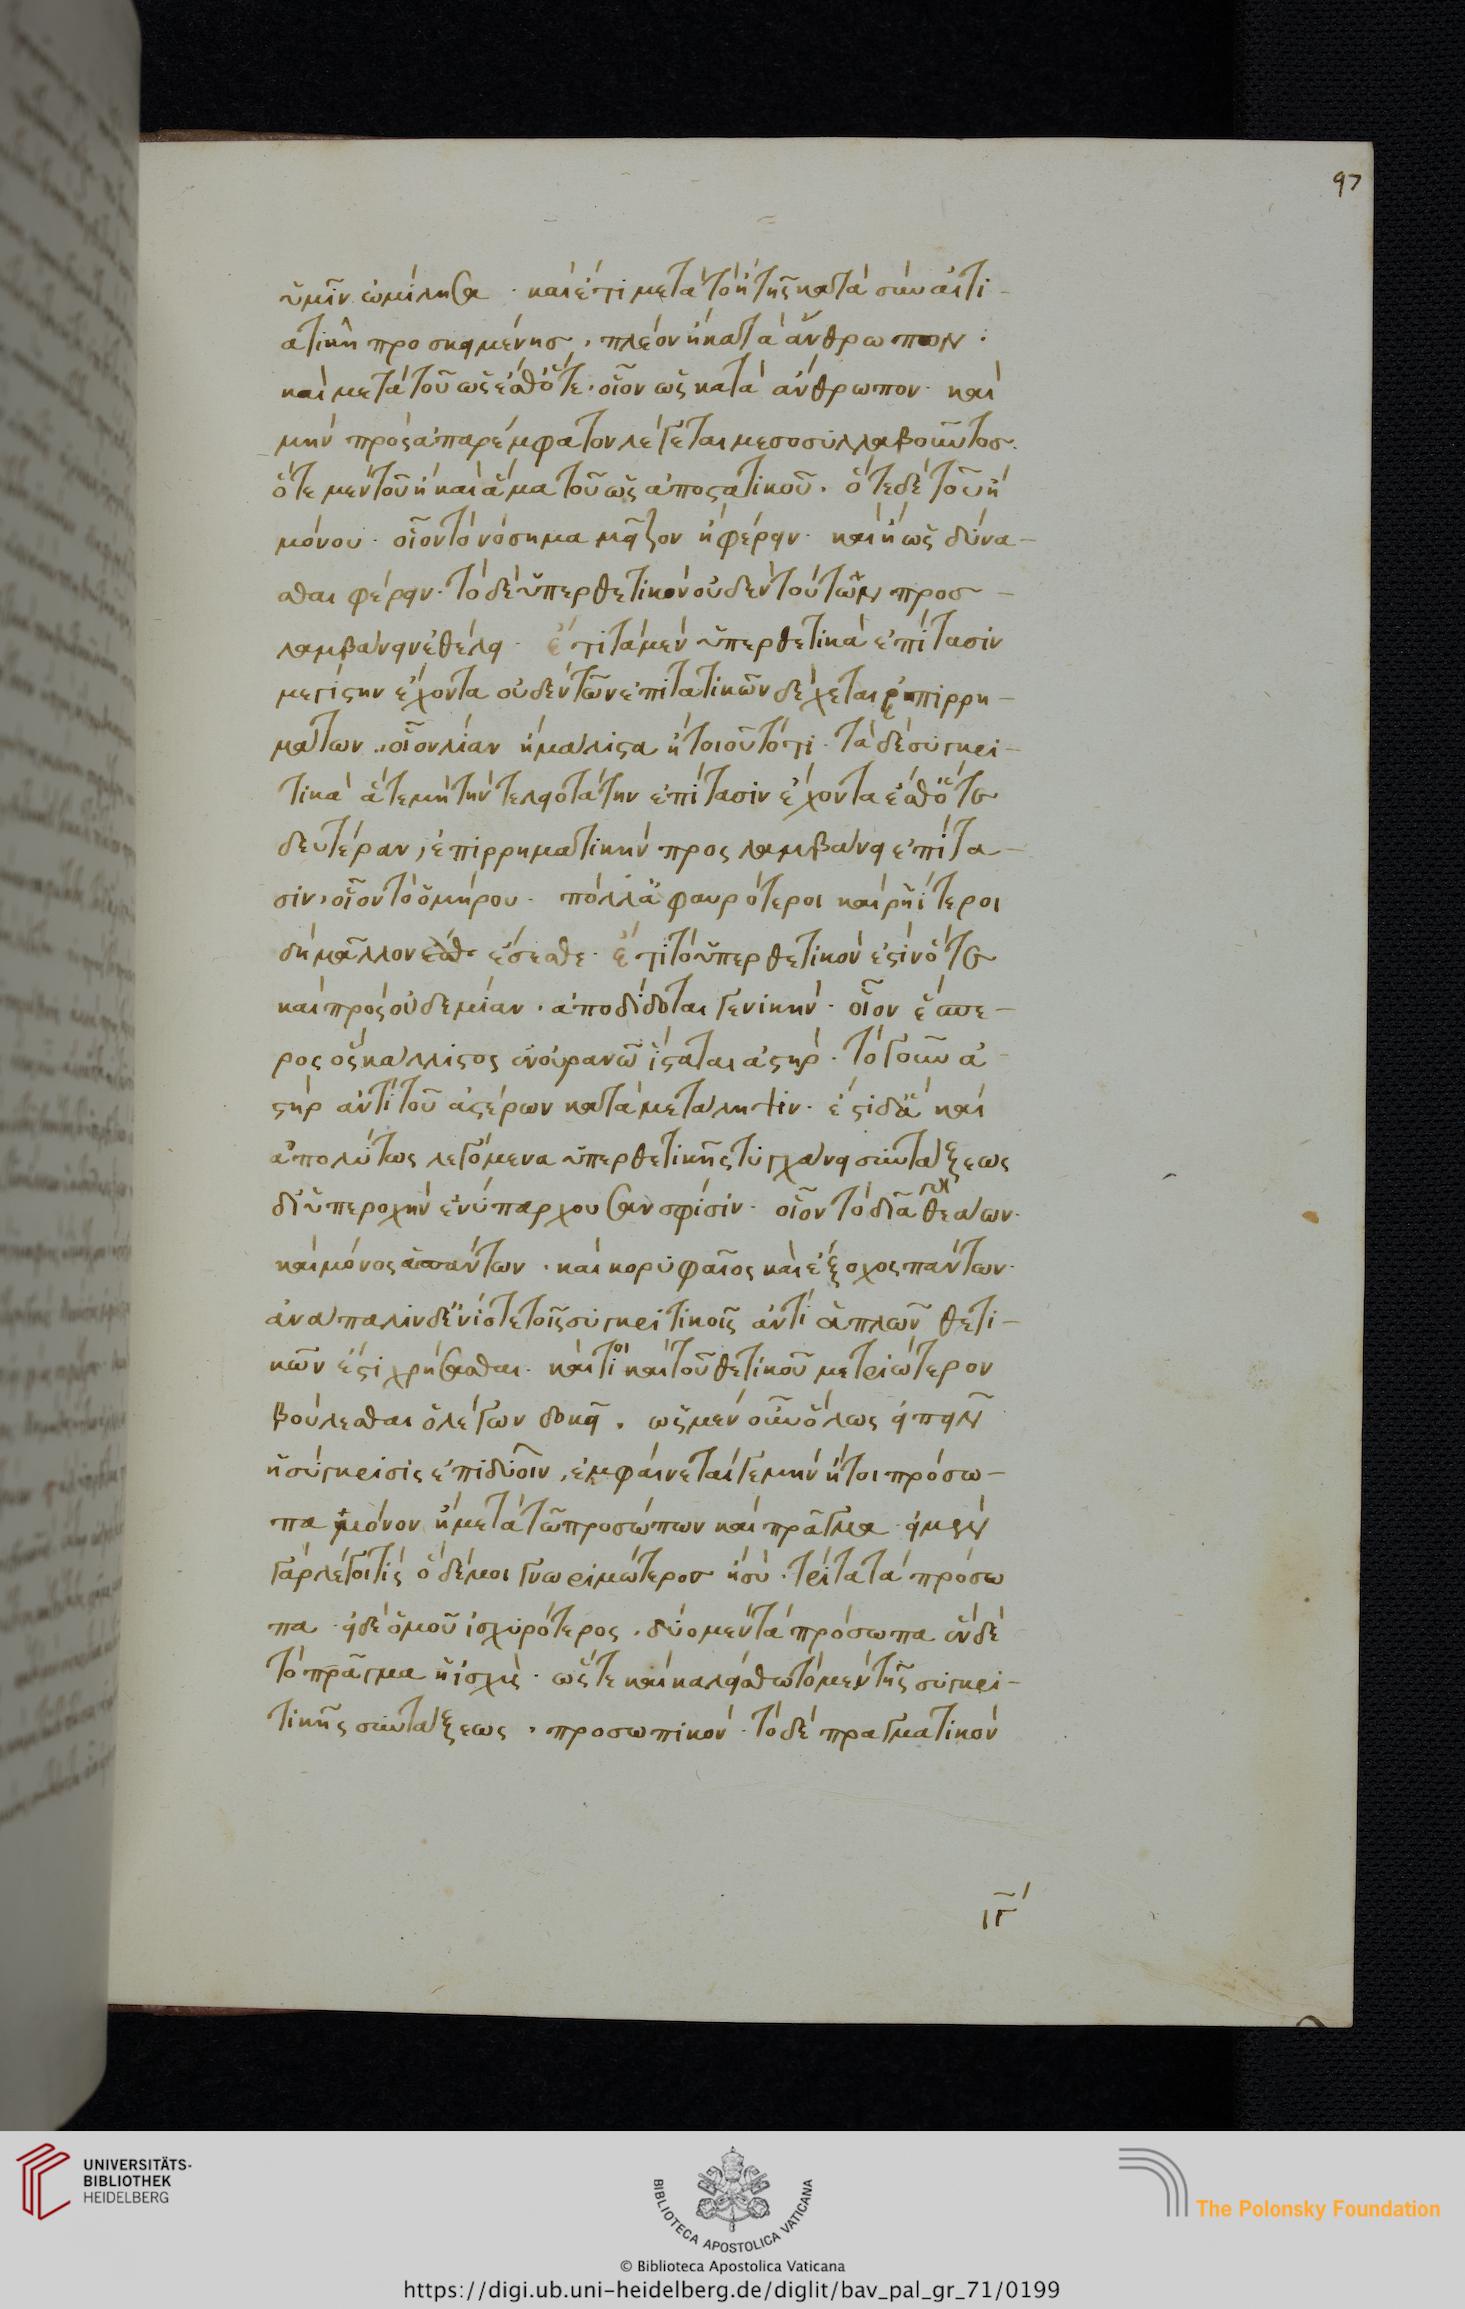 97
ὑμῖν ὡμίλησα · καὶ ἔτι μετὰ τὸ ἢ τῆς κατὰ σὺν αἰτι-
ατικῇ προσκειμένης · πλέον ἢ κατὰ ἄνθρωπον ·
καὶ μετὰ τοῦ ὡς ἔσθ' ὅτε · οἷον ὡς κατὰ ἄνθρωπον · καὶ
μὴν πρὸς ἀπαρέμφατον λέγεται μεσοσυλλαβοῦντος ·
ὅτε μὲν τοῦ ἢ καὶ ἅμα τοῦ ὡς ἀποστατικοῦ · ὅτε δὲ τοῦ ἢ
μόνου · οἷον τὸ νόσημα μεῖζον ἢ φέρειν · καὶ ἢ ὡς δύνα-
σθαι φέρειν · τὸ δὲ ὑπερθετικὸν οὐδὲν τούτων προσ-
λαμβάνειν ἐθέλει · ἔτι τὰ μὲν ὑπερθετικὰ ἐπίτασιν
μεγίστην ἔχοντα οὐδὲν τῶν ἐπιτατικῶν δέχεται ἐπιρρη-
μάτων · οἷον λίαν ἢ μάλιστα ἢ τοιοῦτό τι · τὰ δὲ συγκρι-
τικὰ ἅτε μὴ τὴν τελεοτάτην ἐπίτασιν ἔχοντα ἔσθ' ὅτε
δευτέραν, ἐπιρρηματικὴν προσλαμβάνει ἐπίτα-
σιν, οἷον τὸ ὁμήρου · πολλὰ φαυρότεροι καὶ ῥηΐτεροι
δὴ μᾶλλον ἔσεσθε · ἔτι τὸ ὑπερθετικὸν ἔστιν ὅτε
καὶ πρὸς οὐδεμίαν · ἀποδίδοται γενικήν · οἷον ἕσπε-
ρος ὃς κάλλιστος ἐν οὐρανῷ ἵσταται ἀστήρ · τὸ γοῦν ἀ-
στὴρ ἀντὶ τοῦ ἀστέρων κατὰ μετάληψιν · ἔστι δ' ἃ καὶ
ἀπολύτως λεγόμενα ὑπερθετικῆς τυγχάνει συντάξεως
δι' ὑπεροχὴν ἐνυπάρχουσαν σφίσιν · οἷον τὸ δῖα θεάων ·
καὶ μόνος ἁπάντων · καὶ κορυφαῖος καὶ ἔξοχος πάντων ·
ἀνάπαλιν δ' ἐνίοτε τοῖς συγκριτικοῖς ἀντὶ ἁπλῶν θετι-
κῶν ἔστι χρήσασθαι · καί τοι καὶ τοῦ θετικοῦ μετριώτερον
βούλεσθαι ὁ λέγων δοκεῖ · ὡς μὲν οὖν ὅλως εἰπεῖν
ἡ σύγκρισις ἐπὶ δυοῖν, ἐμφαίνεταί γε μὴν ἤτοι πρόσω-
πα μόνον ἢ μετὰ τῶν προσώπων καὶ πρᾶγμα · εἰ μὲν
γὰρ λέγοι τίς ὅδέ μοι γνωριμώτερος ἢ σύ · τρία τὰ πρόσω
πα · εἰ δὲ ὁμοῦ ἰσχυρότερος · δύο μὲν τὰ πρόσωπα ἓν δὲ
τὸ πρᾶγμα ἡ ἰσχύς · ὥστε καὶ καλείσθω τὸ μὲν τῆς συγκρι-
τικῆς συντάξεως · προσωπικόν · τὸ δὲ πραγματικόν
ιγ'
UNIVERSITÄTS-
BIBLIOTHEK
HEIDELBERG
BIBLIOTECA APOSTOLICA VATICANA
The Polonsky Foundation
© Biblioteca Apostolica Vaticana
https://digi.ub.uni-heidelberg.de/diglit/bav_pal_gr_71/0199